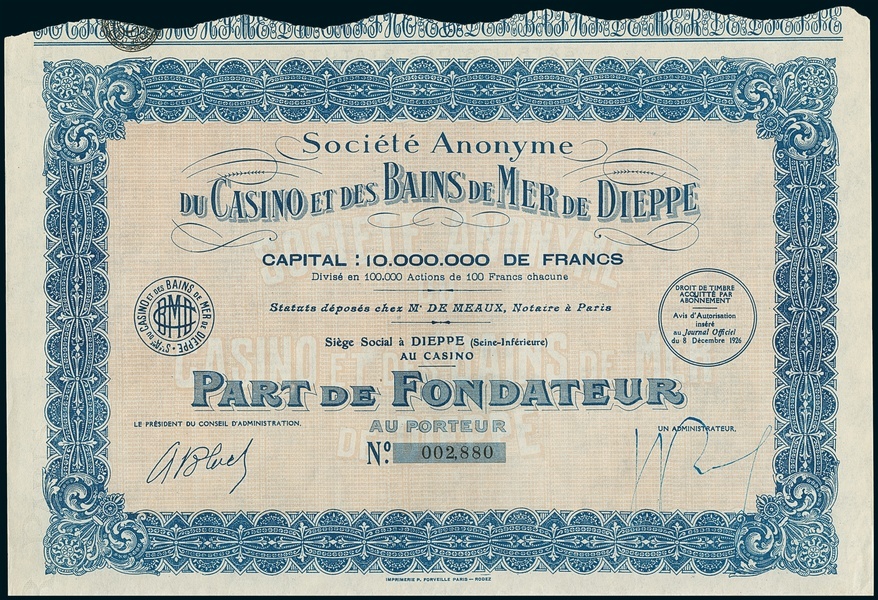 Société Anonyme
DU CASINO ET DES BAINS DE MER DE DIEPPE
CAPITAL : 10.000.000 DE FRANCS
Divisé en 100.000 Actions de 100 Francs chacune
Statuts déposés chez Mᵉ DE MEAUX, Notaire à Paris
Siège Social à DIEPPE (Seine-Inférieure)
AU CASINO
Sᵗᵉ Aᵐᵉ DU CASINO ET DES BAINS DE MER DE DIEPPE
DROIT DE TIMBRE
ACQUITTÉ PAR
ABONNEMENT
Avis d'Autorisation
inséré
au Journal Officiel
du 8 Décembre 1926
PART DE FONDATEUR
AU PORTEUR
Nº. 002,880
LE PRÉSIDENT DU CONSEIL D'ADMINISTRATION.
UN ADMINISTRATEUR,
SOCIÉTÉ ANONYME
DU
CASINO ET DES BAINS DE MER
DE DIEPPE
IMPRIMERIE P. FORVEILLE PARIS — RODEZ